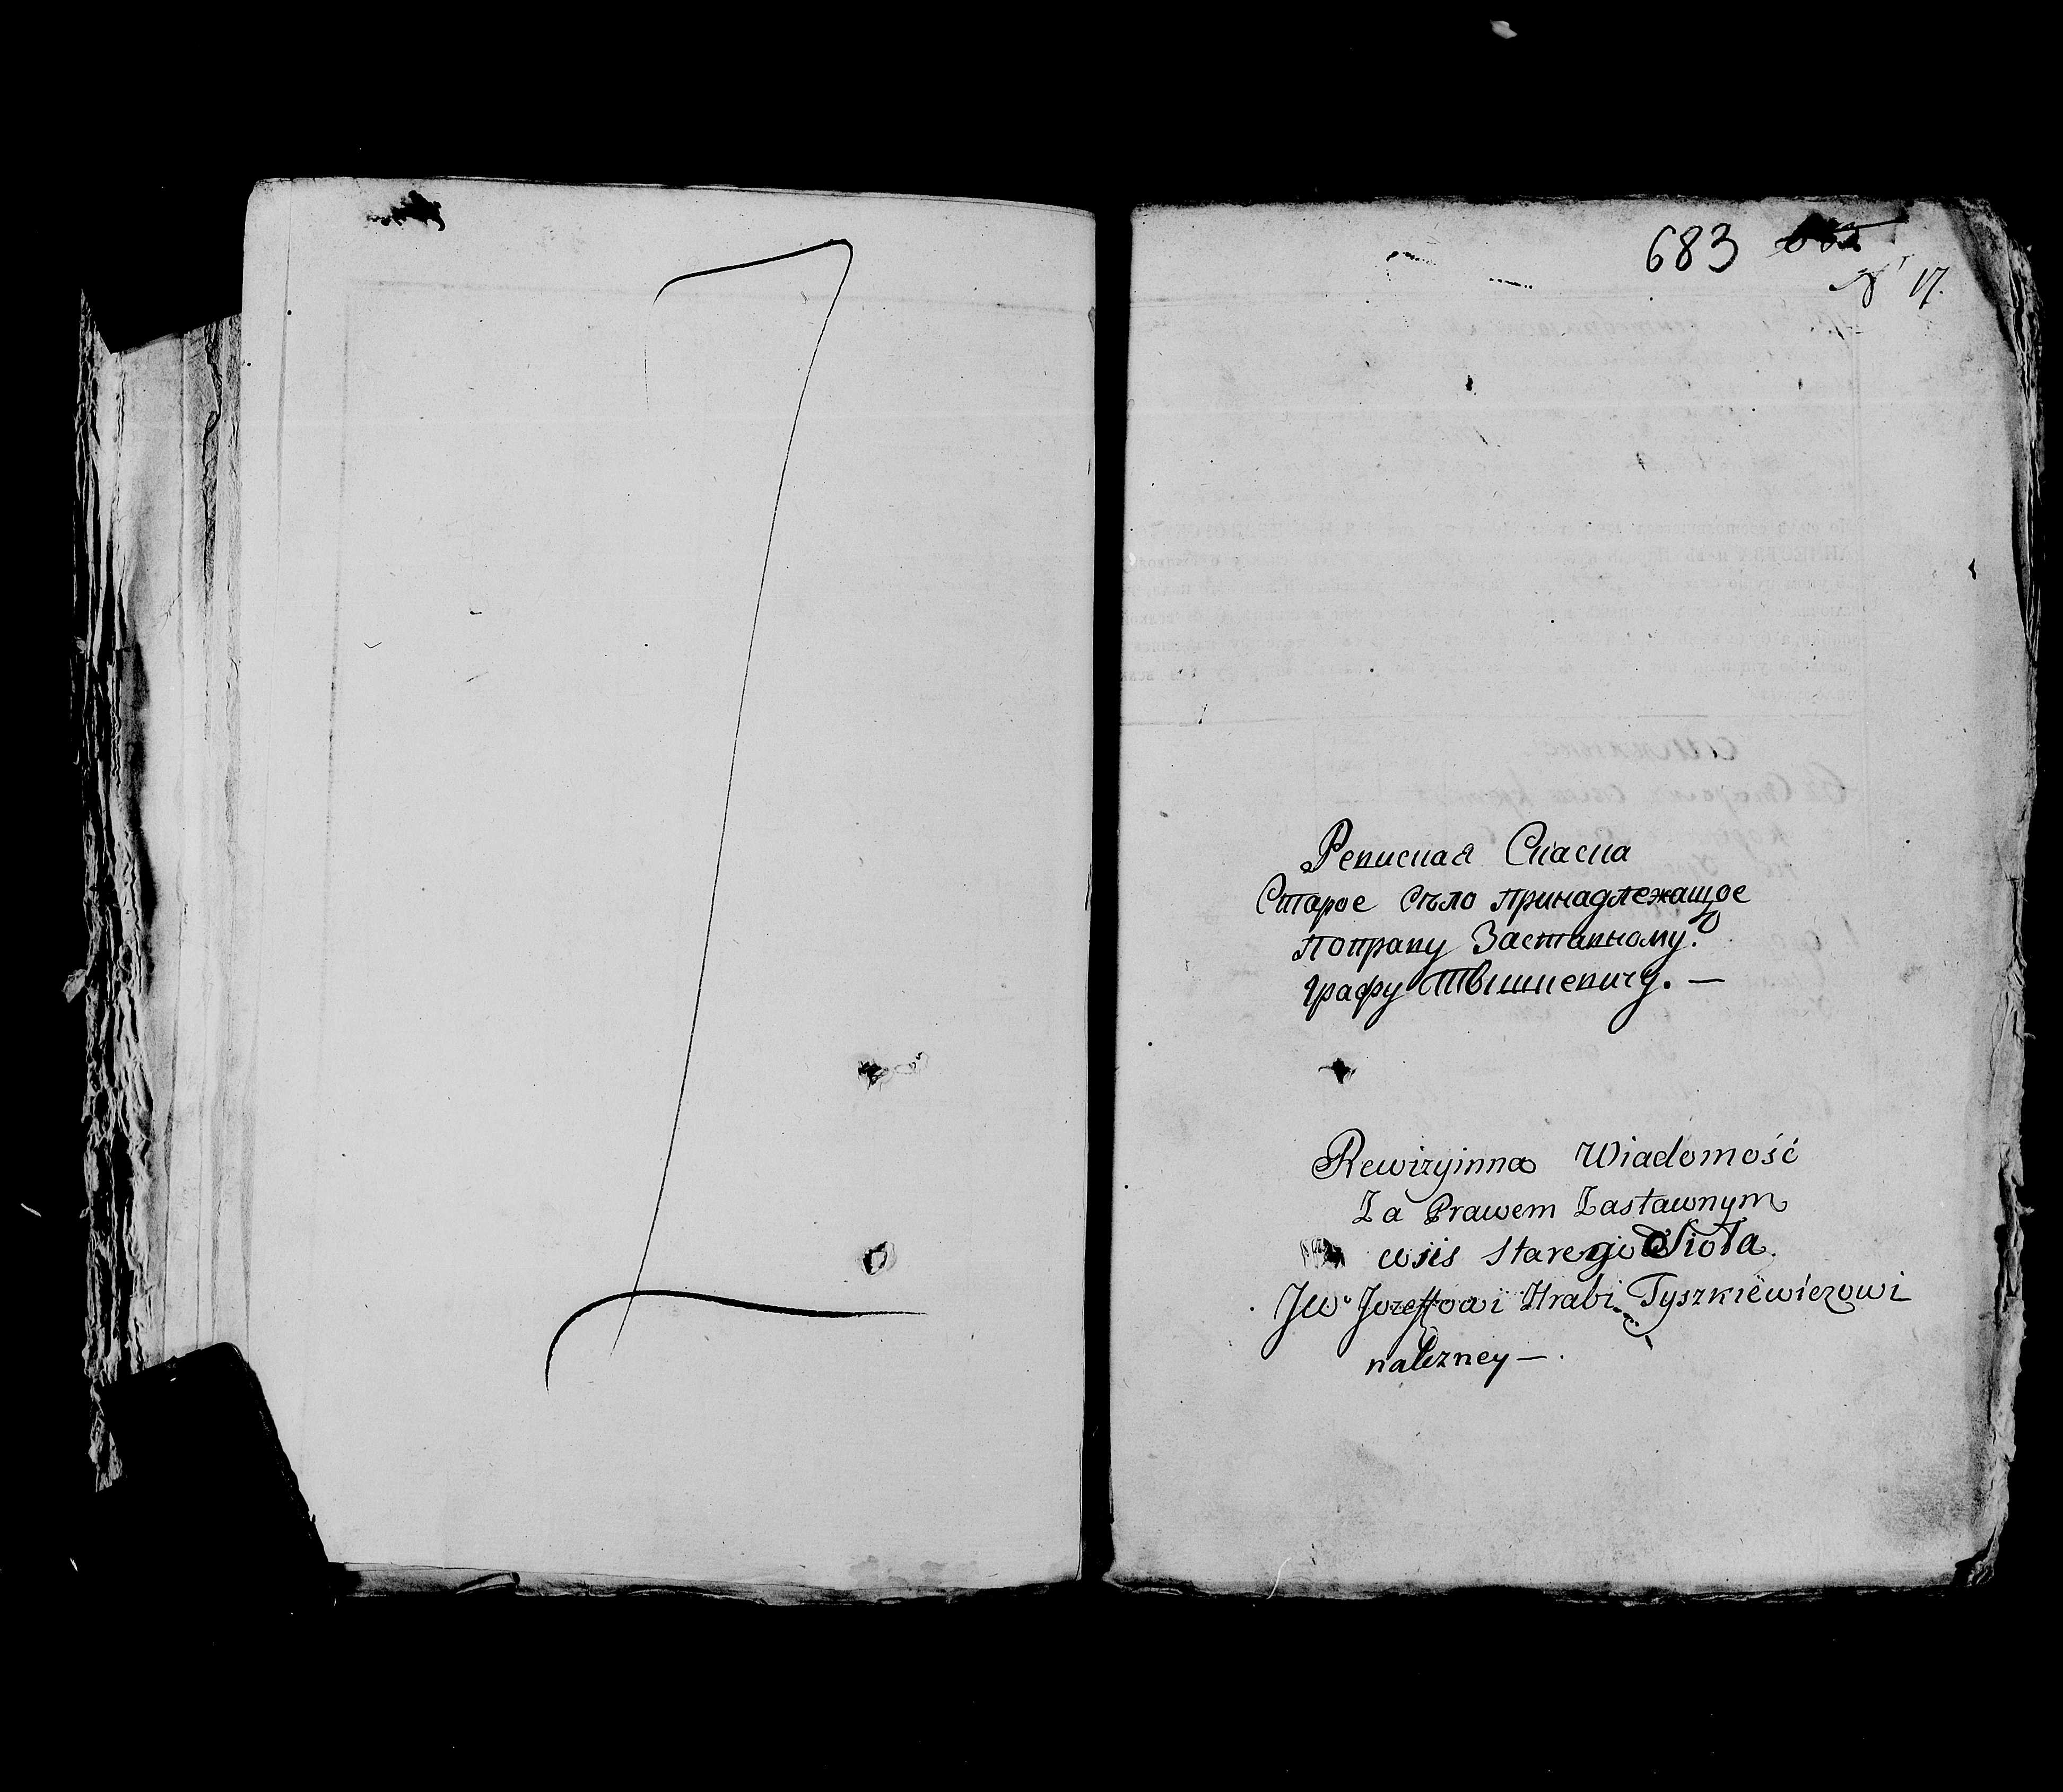 683
№ 17.
Ревисная Скаска
Старое Съло принадлежащое
По праву Заставному.
Графу Тышкевичу. —
Rewizyinna Wiadomość
Za Prawem Zastawnym
wsis Starego Sioła.
JW Jozeffowi Hrabi Tyszkiewiczowi
należney — .